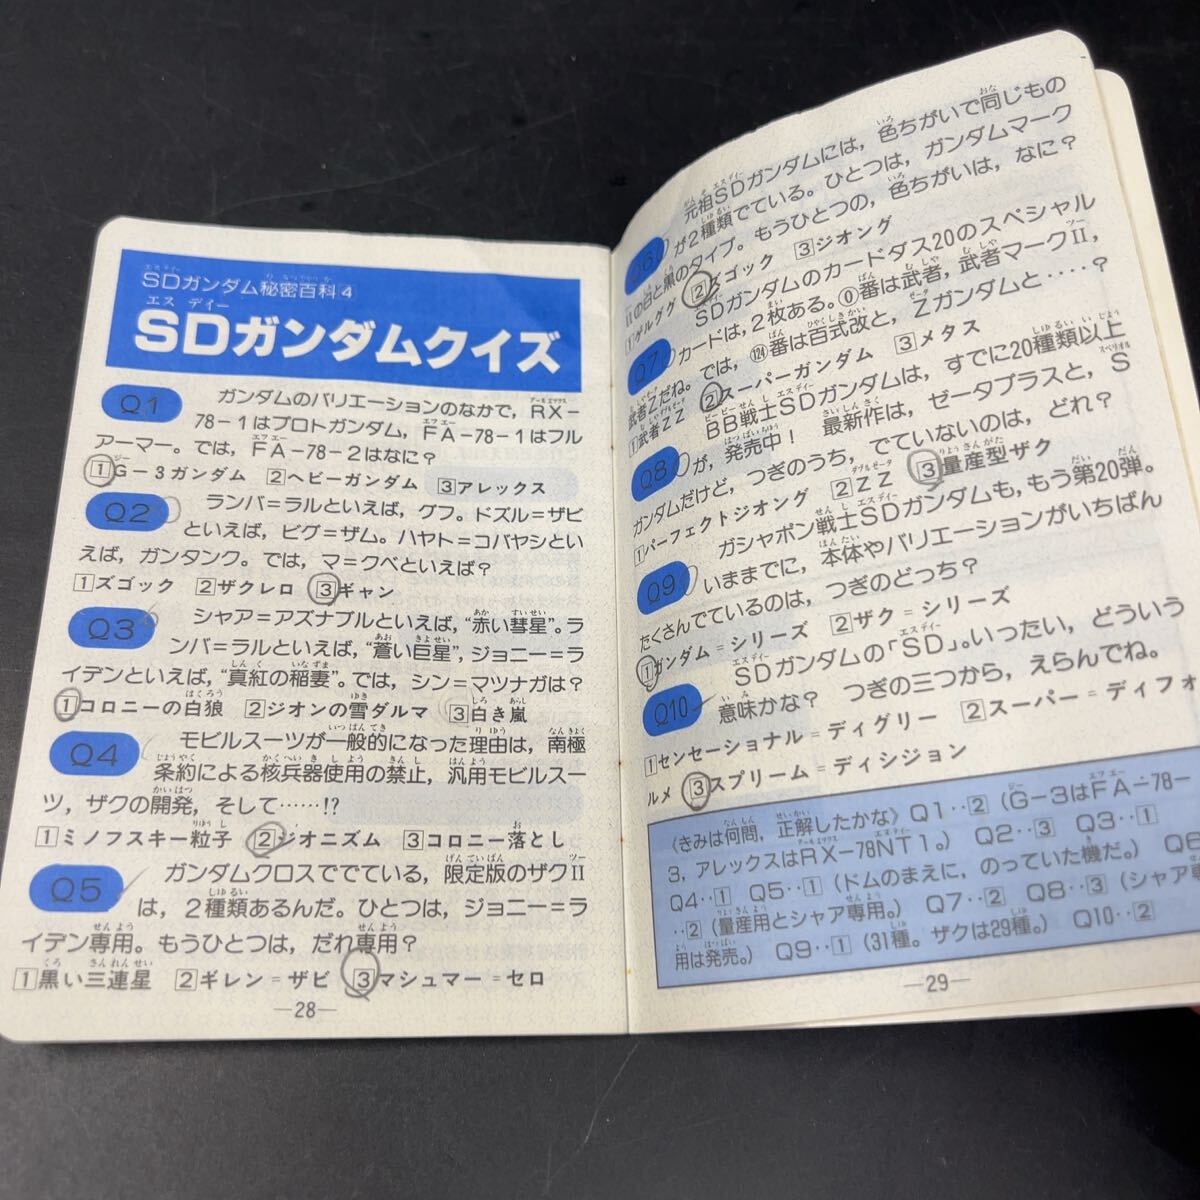 SDガンダム秘密百科4
SDガンダムクイズ
Q1 ガンダムのバリエーションのなかで，RX-
78-1はプロトガンダム，FA-78-1はフル
アーマー。では，FA-78-2はなに？
1G-3ガンダム 2ヘビーガンダム 3アレックス
Q2 ランバ＝ラルといえば，グフ。ドズル＝ザビ
といえば，ビグ＝ザム。ハヤト＝コバヤシとい
えば，ガンタンク。では，マ＝クベといえば？
1ズゴック 2ザクレロ 3ギャン
Q3 シャア＝アズナブルといえば，“赤い彗星”。ラ
ンバ＝ラルといえば，“蒼い巨星”，ジョニー＝ラ
イデンといえば，“真紅の稲妻”。では，シン＝マツナガは？
1コロニーの白狼 2ジオンの雪ダルマ 3白き嵐
Q4 モビルスーツが一般的になった理由は，南極
条約による核兵器使用の禁止，汎用モビルスー
ツ，ザクの開発，そして……!?
1ミノフスキー粒子 2ジオニズム 3コロニー落とし
Q5 ガンダムクロスででている，限定版のザクⅡ
は，2種類あるんだ。ひとつは，ジョニー＝ラ
イデン専用。もうひとつは，だれ専用？
1黒い三連星 2ギレン＝ザビ 3マシュマー＝セロ
—28—
元祖SDガンダムには，色ちがいで同じもの
Q6 が2種類でている。ひとつは，ガンダムマーク
Ⅱの白と黒のタイプ。もうひとつの，色ちがいは，なに？
1ゲルググ 2ズゴック 3ジオング
SDガンダムのカードダス20のスペシャル
Q7 カードは，2枚ある。⓪番は武者，武者マークⅡ，
武者Zだね。では，124番は百式改と，Zガンダムと……？
1武者ZZ 2スーパーガンダム 3メタス
BB戦士SDガンダムは，すでに20種類以上
Q8 が，発売中！ 最新作は，ゼータプラスと，S
ガンダムだけど，つぎのうち，でていないのは，どれ？
1パーフェクトジオング 2ZZ 3量産型ザク
ガシャポン戦士SDガンダムも，もう第20弾。
Q9 いままでに，本体やバリエーションがいちばん
たくさんでているのは，つぎのどっち？
1ガンダム＝シリーズ 2ザク＝シリーズ
SDガンダムの「SD」。いったい，どういう
Q10 意味かな？ つぎの三つから，えらんでね。
1センセーショナル＝ディグリー 2スーパー＝ディフォ
ルメ 3スプリーム＝ディシジョン
〈きみは何問，正解したかな〉Q1‥2（G-3はFA-78-
3，アレックスはRX-78NT1。） Q2‥3 Q3‥1
Q4‥1 Q5‥1（ドムのまえに，のっていた機だ。） Q6
‥2（量産用とシャア専用。） Q7‥2 Q8‥3（シャア専
用は発売。） Q9‥1（31種。ザクは29種。） Q10‥2
—29—